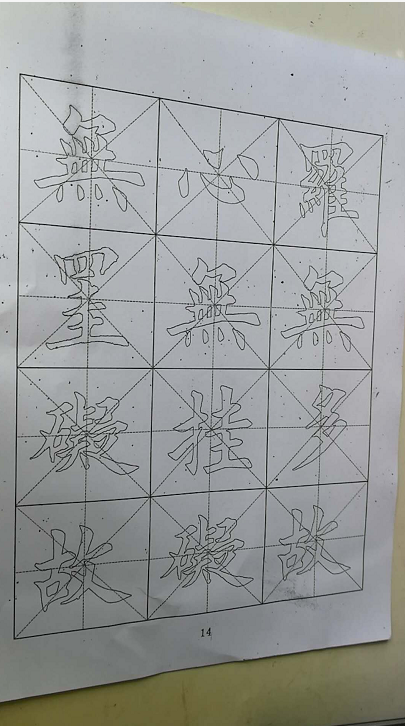 羅無多故
心無挂礙
無罣礙故
14